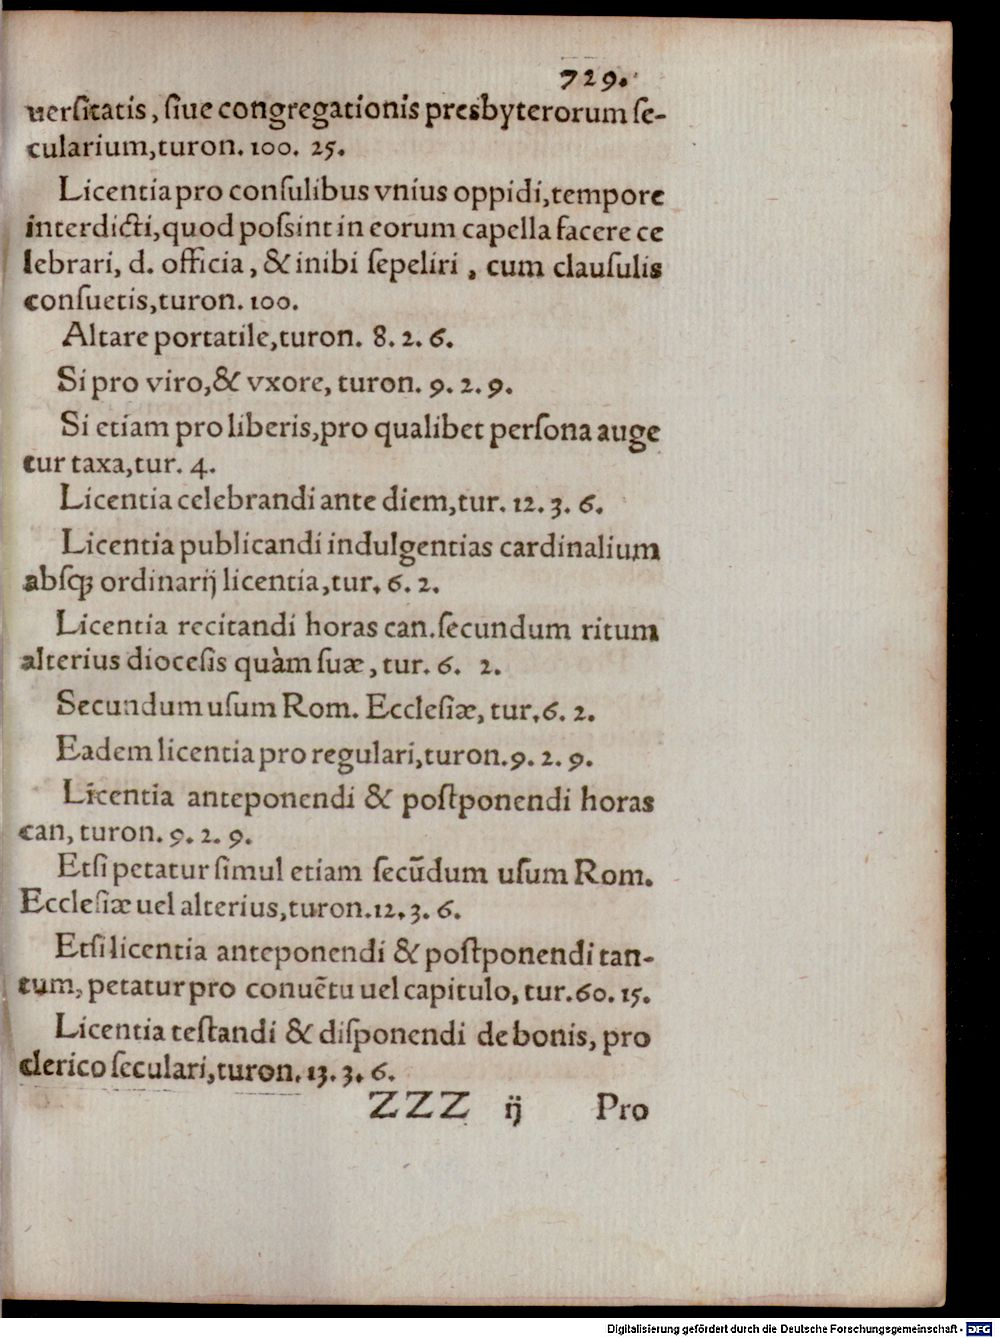 729.
uerſitatis, ſiue congregationis presbyterorum ſe-
cularium, turon. 100. 25.
Licentia pro conſulibus vnius oppidi, tempore
interdicti, quod poſsint in eorum capella facere ce
lebrari, d. officia, & inibi ſepeliri, cum clauſulis
conſuetis, turon. 100.
Altare portatile, turon. 8. 2. 6.
Si pro viro, & vxore, turon. 9. 2. 9.
Si etiam pro liberis, pro qualibet perſona auge
tur taxa, tur. 4.
Licentia celebrandi ante diem, tur. 12. 3. 6.
Licentia publicandi indulgentias cardinalium
abſqꝫ ordinarij licentia, tur. 6. 2.
Licentia recitandi horas can. ſecundum ritum
alterius dioceſis quàm ſuæ, tur. 6. 2.
Secundum uſum Rom. Eccleſiæ, tur. 6. 2.
Eadem licentia pro regulari, turon. 9. 2. 9.
Licentia anteponendi & poſtponendi horas
can, turon. 9. 2. 9.
Etſi petatur ſimul etiam ſecūdum uſum Rom.
Eccleſiæ uel alterius, turon. 12. 3. 6.
Etſi licentia anteponendi & poſtponendi tan-
tum, petatur pro conuētu uel capitulo, tur. 60. 15.
Licentia teſtandi & diſponendi de bonis, pro
clerico ſeculari, turon. 13. 3. 6.
ZZZ ij Pro
Digitalisierung gefördert durch die Deutsche Forschungsgemeinschaft - DFG